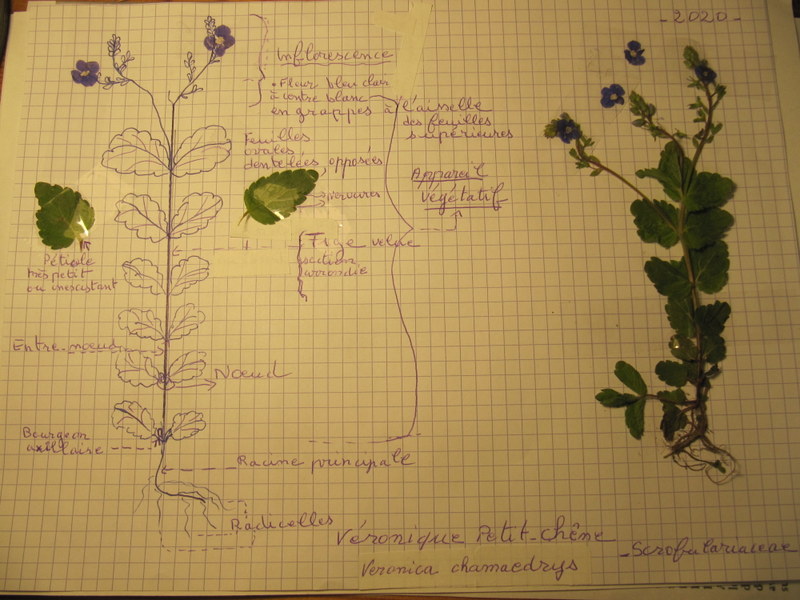 - 2020 -
Inflorescence
• Fleur bleu clair
à centre blanc
en grappes à l'aisselle
des feuilles
supérieures
Feuilles
ovales
dentelées, opposées
nervures
Appareil
Végétatif
Tige velue
section
arrondie
Pétiole
très petit
ou inexistant
Entre-nœud
Nœud
Bourgeon
axillaire
Racine principale
Radicelles
Véronique Petit-chêne
Veronica chamaedrys
- Scrofulariaceae